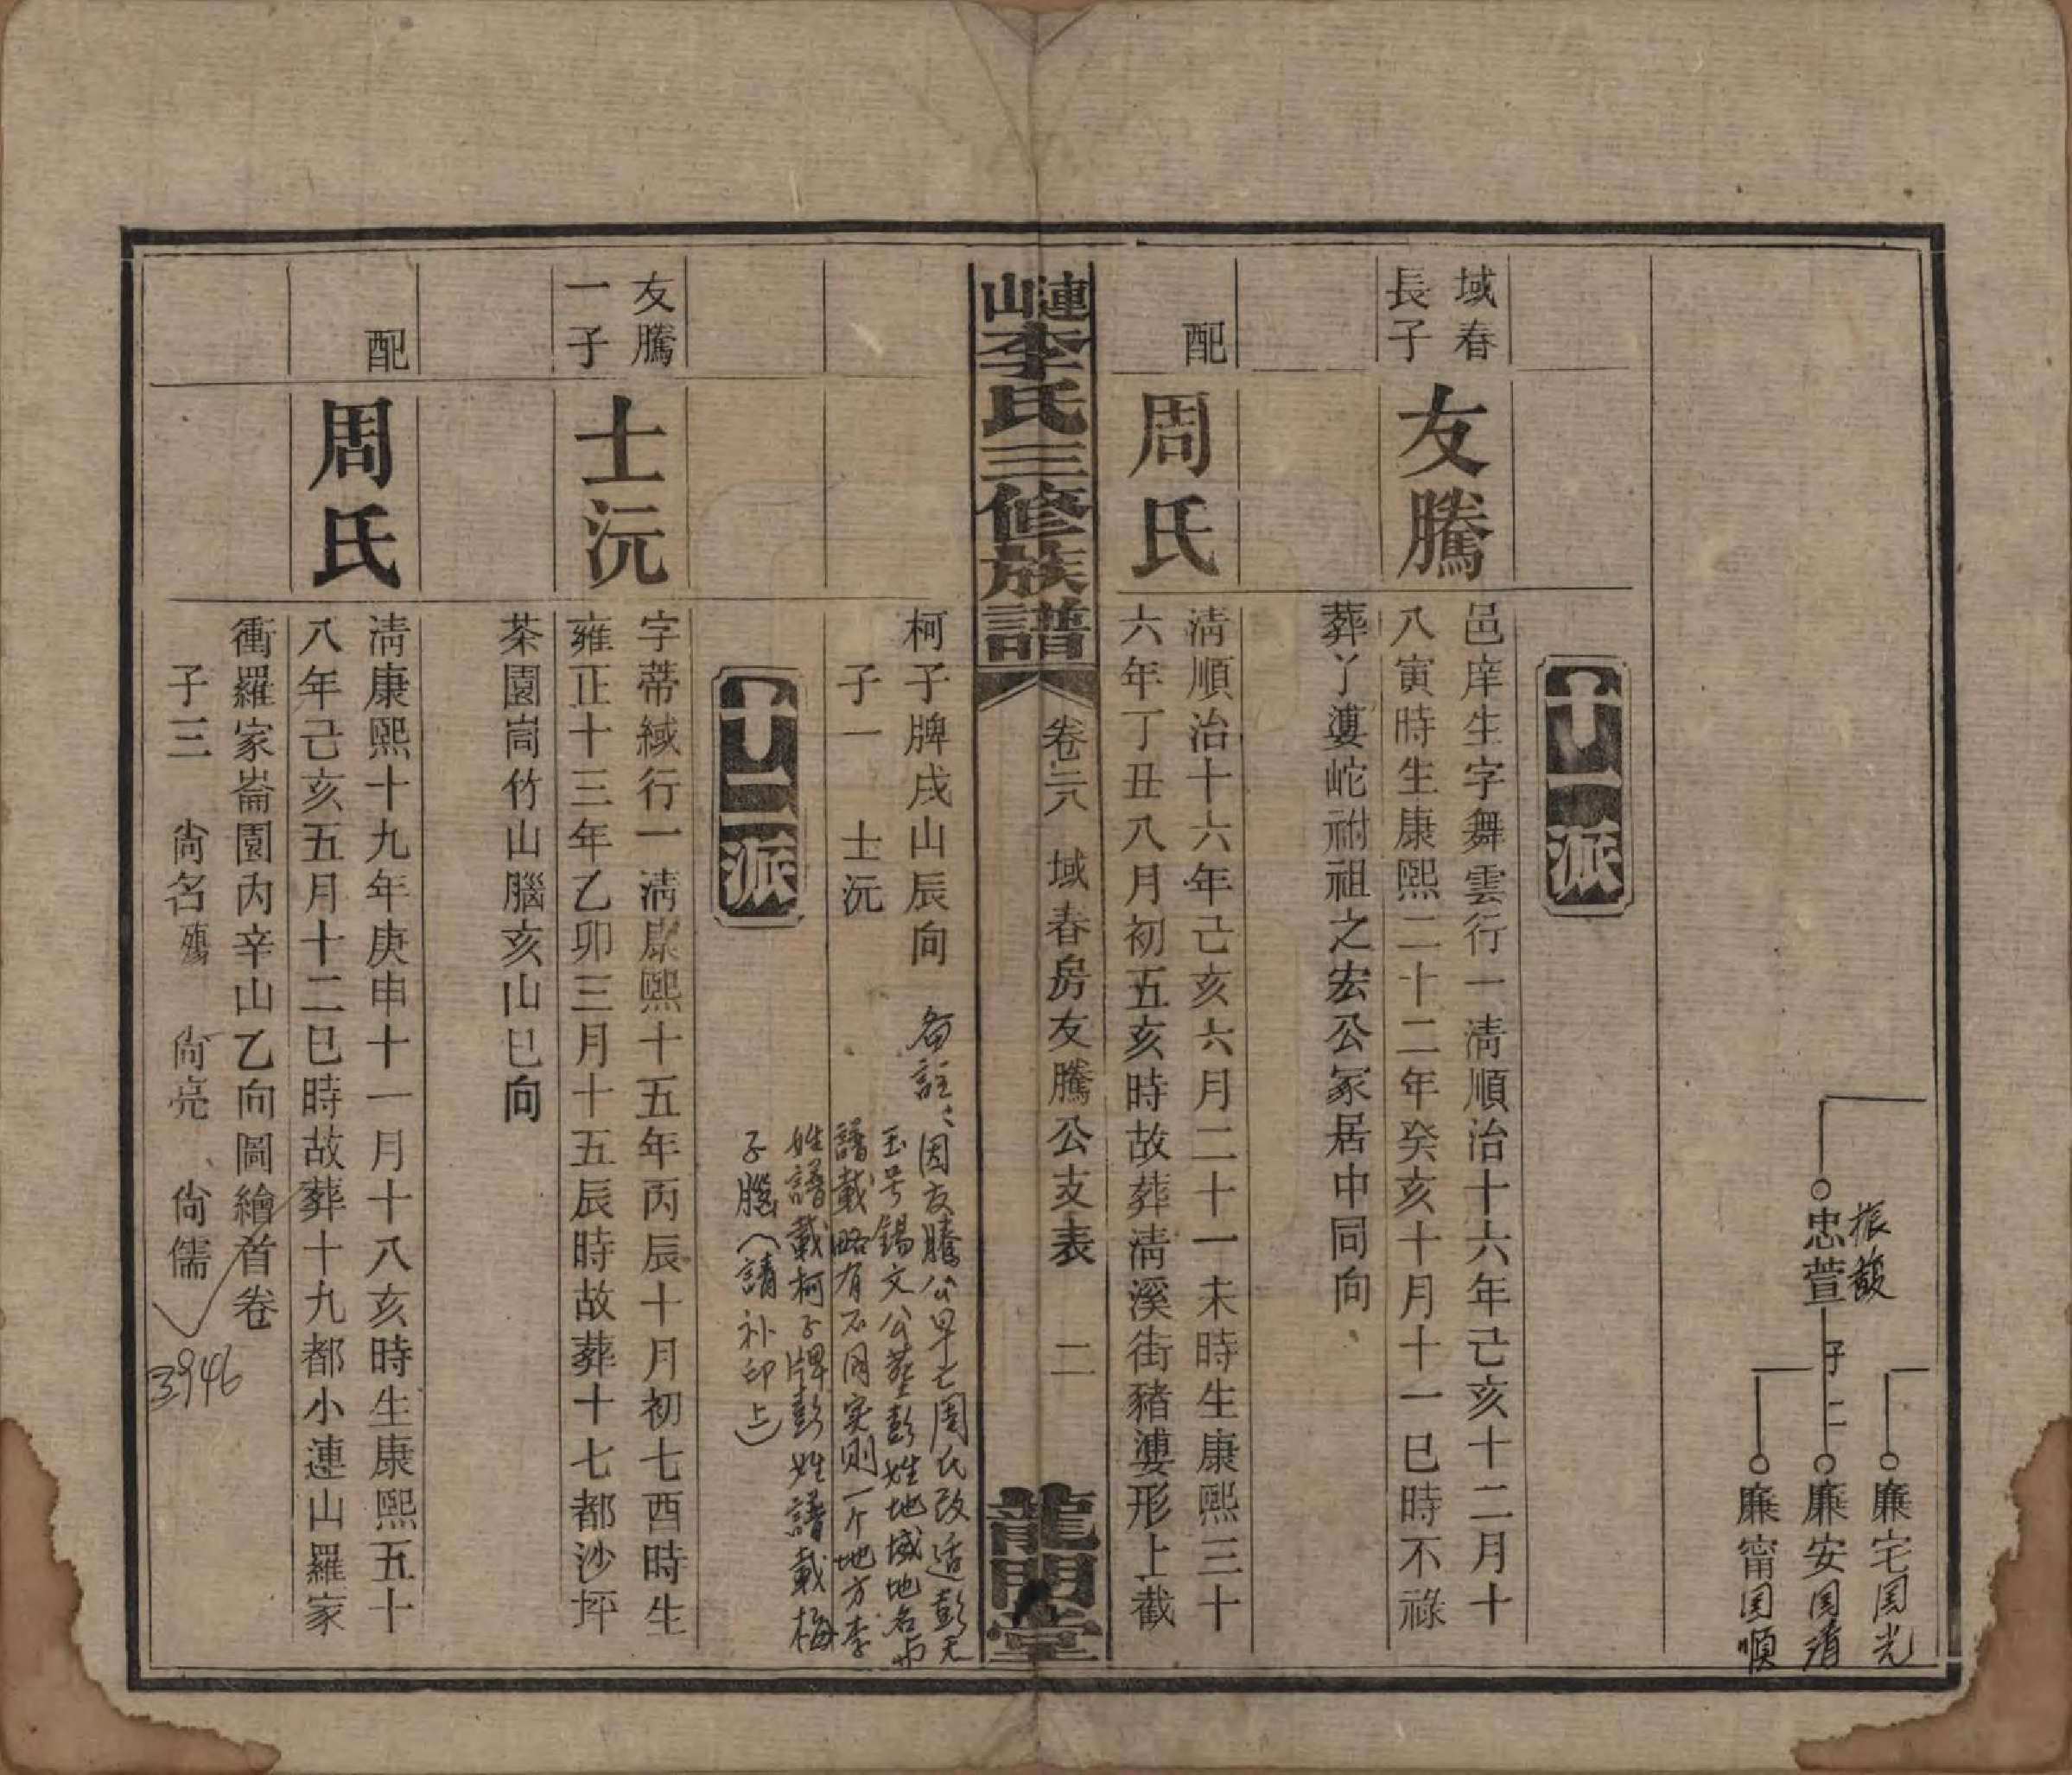 振馥
忠萱
子二
廉宅国光
廉安国清
廉甯国順
十一派
域春
長子
友騰
邑庠生字舞雲行一淸順治十六年己亥十二月十
八寅時生康熙二十二年癸亥十月十一巳時不祿
葬丫婁岮祔祖之宏公冢居中同向
配
周氏
淸順治十六年己亥六月二十一未時生康熙三十
六年丁丑八月初五亥時故葬淸溪街豬婆形上截
漣山李氏三修族譜
卷六 域春房友騰公支表 二
龍門堂
柯子牌戌山辰向
子一 士沅
备註：因友騰公早亡周氏改适彭天
玉号錫文公葬彭姓地域地名与
譜載略有不同实则一个地方李
姓譜載柯子牌彭姓譜載梅
子腦（請补印上）
十二派
友騰
一子
士沅
字蒂緎行一淸康熙十五年丙辰十月初七酉時生
雍正十三年乙卯三月十五辰時故葬十七都沙坪
茶園峝竹山腦亥山巳向
配
周氏
淸康熙十九年庚申十一月十八亥時生康熙五十
八年己亥五月十二巳時故葬十九都小連山羅家
衝羅家崙園內辛山乙向圖繪首卷
子三 尙名殤 尙亮 尙儒
3946